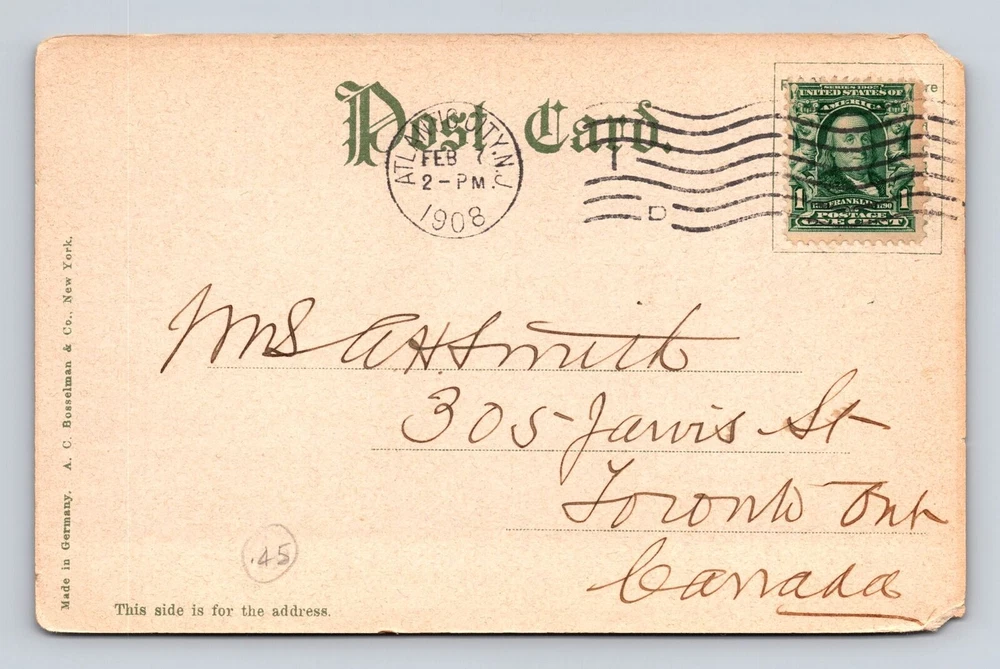 Post Card.
ATLANTIC CITY, N.J.
FEB 7
2-PM
1908
D
SERIES 1902
UNITED STATES OF
AMERICA
1 FRANKLIN 1790 1
POSTAGE
ONE CENT
Mrs A H Smith
305 Jarvis St
Toronto Ont
Canada
.45
This side is for the address.
Made in Germany. A. C. Bosselman & Co., New York.